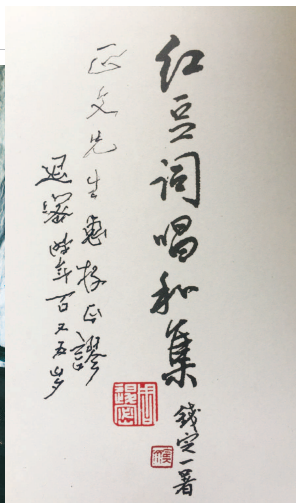 红豆词唱和集
錢定一署
正文先生惠存正謬
退密 时年百又五岁